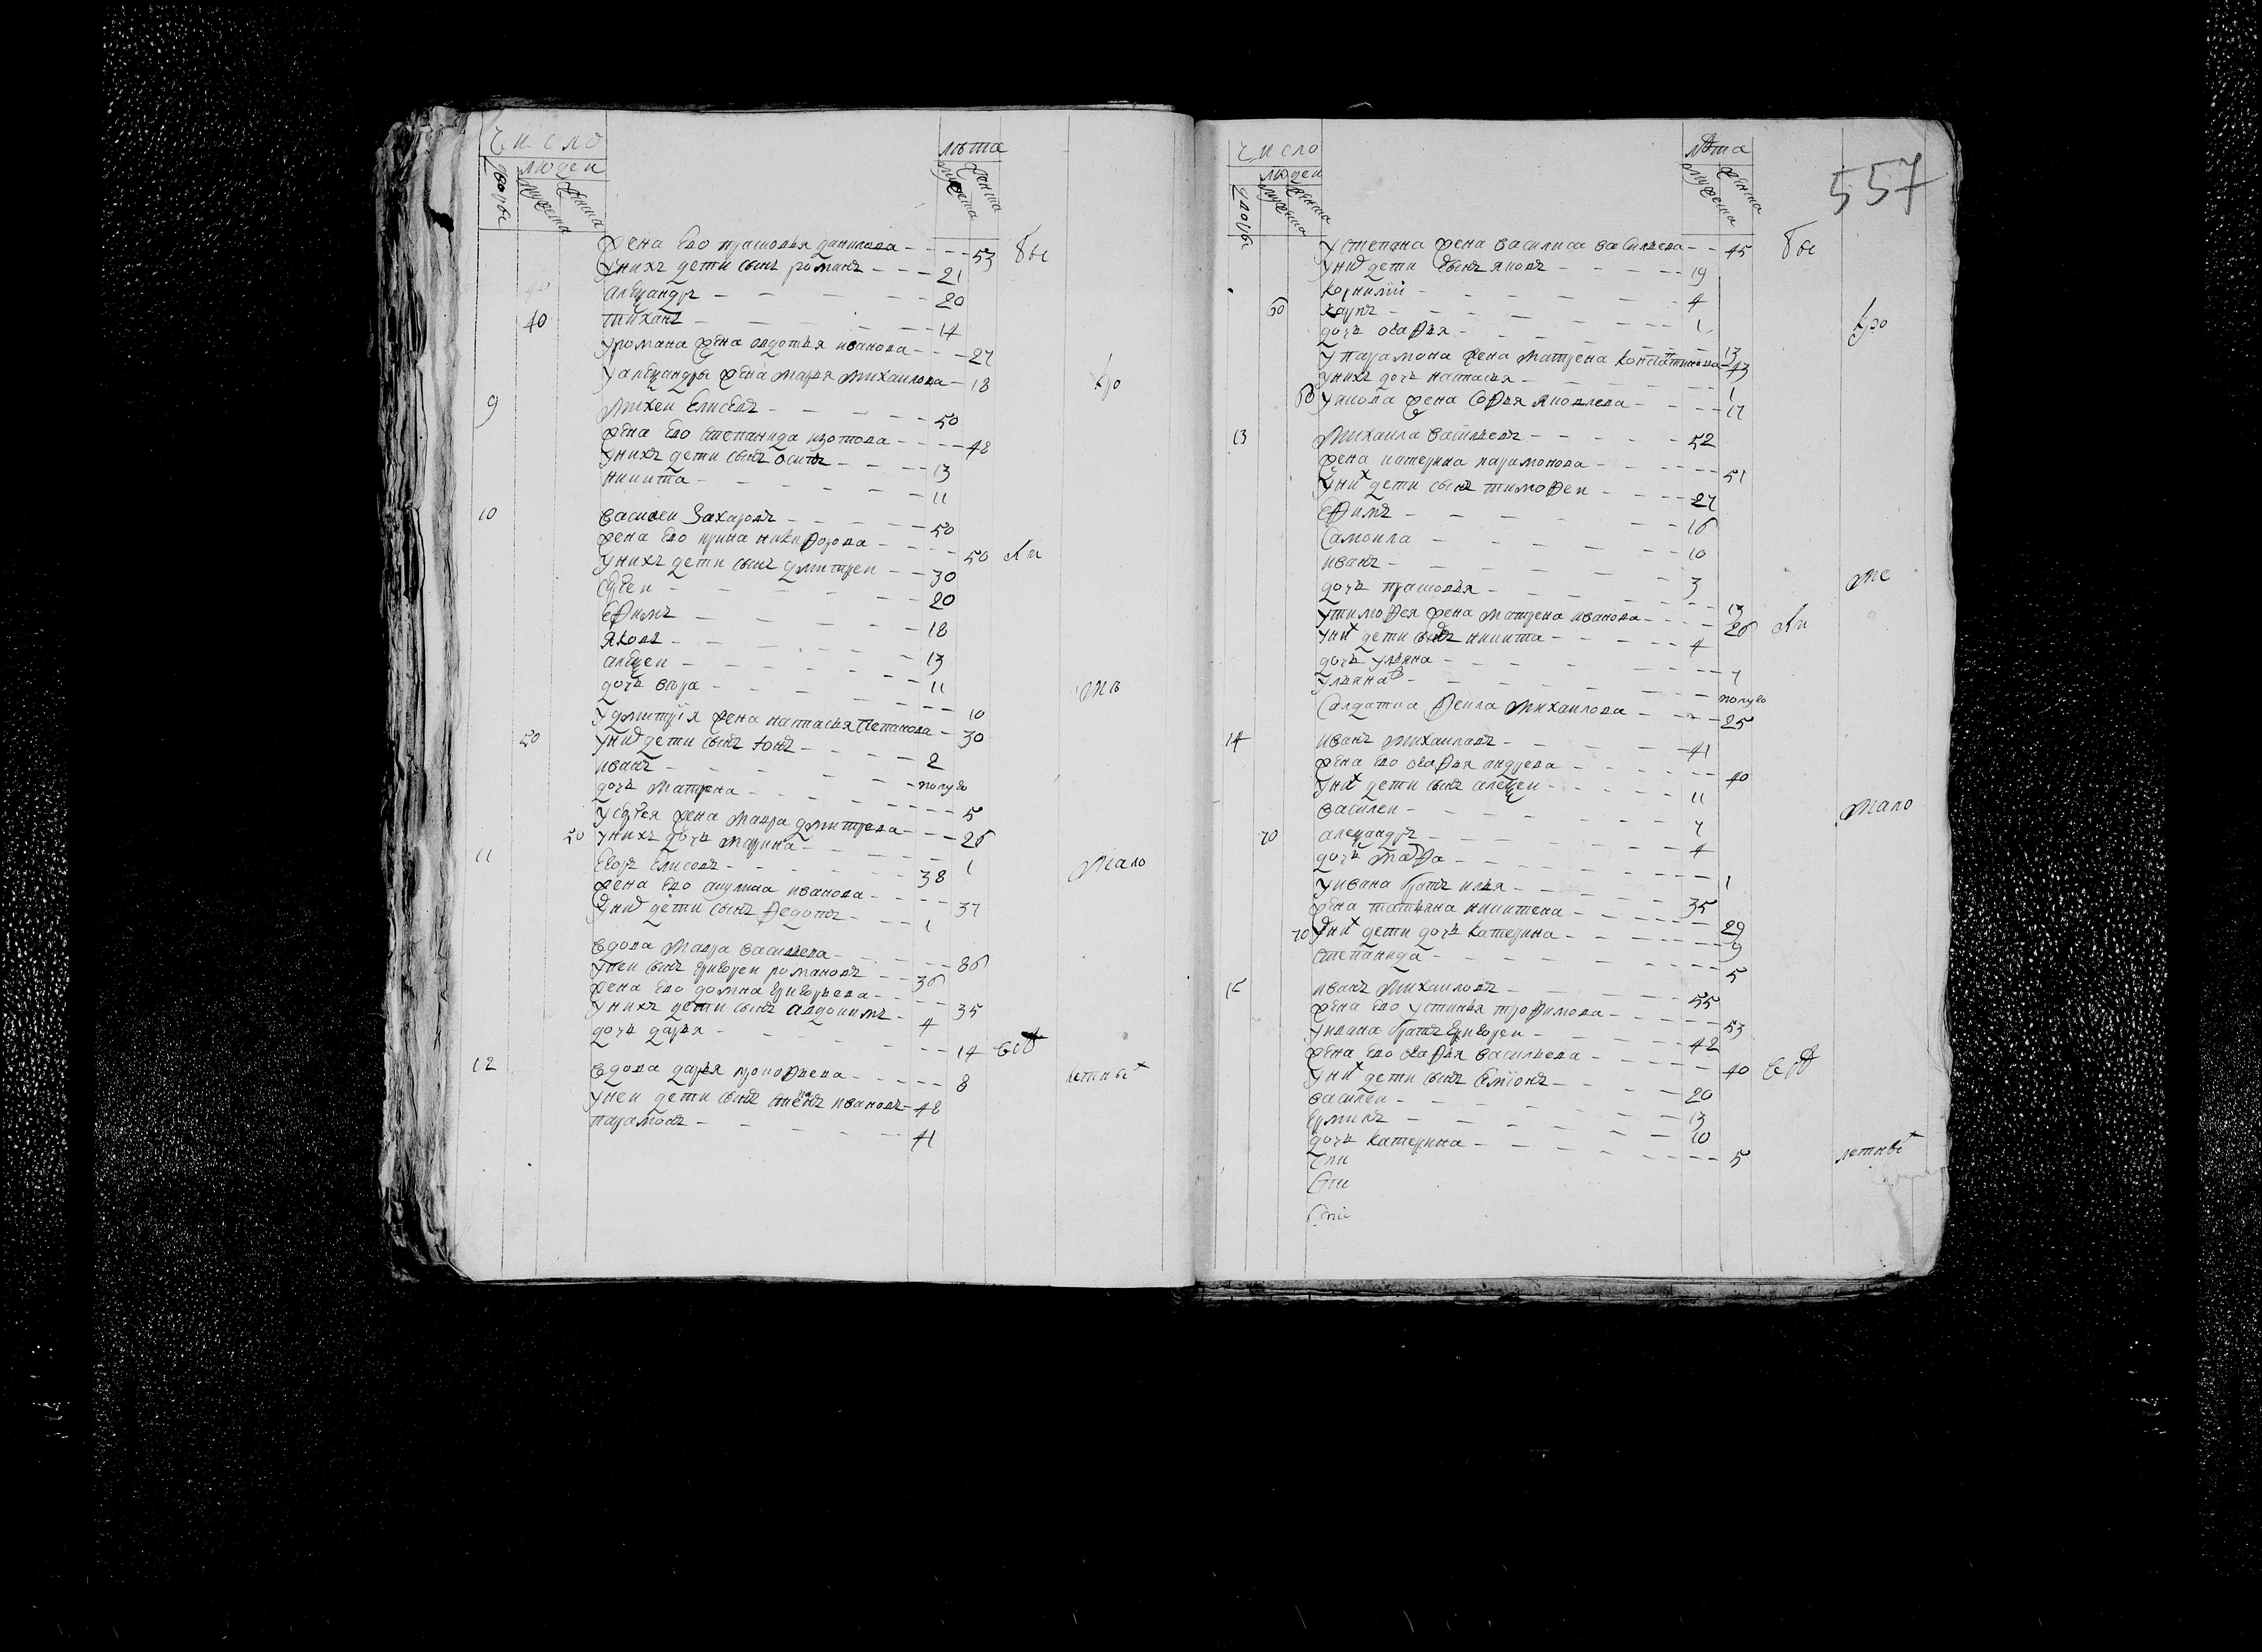 число
людей
дворы
мужеска
женска
лѣта
мужеска
женска
жена ево прасковья данилова 53 бы
у нихъ дети сынъ романъ 21
александръ 20
40 тиханъ 14
у романа жена авдотья иванова 27
у александры жена марья михаилова 18 кро
9 михеи елисеевъ 50
жена ево степанида изотова 48
у нихъ дети сынъ осипъ 13
никита 11
10 василеи захаровъ 50
жена ево ирина никифорова 50 ки
у нихъ дети сынъ дмитреи 30
сергеи 20
ефимъ 18
яковъ 13
алексеи 11
дочь вера 10 ме
у дмитрія жена настасья степанова 30
50 у них дети сынъ іонъ 2
иванъ полуго
дочь матрена 5
у сергея жена мавра дмитрева 26
50 у нихъ дочь марина 1
11 егоръ елисеевъ 38 мало
жена ево акулина иванова 37
у них дети сынъ федотъ 1
вдова мавра васильева 86
у неи сынъ григореи романовъ 36
жена ево домна григорьева 35
у нихъ дети сынъ авдокимъ 4
дочь дарья 14
12 вдова дарья прокофьева 8 летных
у неи дети сынъ степанъ ивановъ 48
парамонъ 41
число
людеи
дворы
мужеска
женска
лѣта
мужеска
женска
557
у степана жена василиса васильева 45 бы
у них дети сынъ яковъ 19
корнилии 4
60 карпъ 1 кро
дочь агафья 13
у парамона жена матрена констатинова 43
у нихъ дочь настасья 1
60 у якова жена софья яковлева 17
13 михаила васильевъ 52
жена катерина парамонова 51
у них дети сынъ тимофеи 27
ефимъ 16
самоила 10
иванъ 3
дочь прасковья 13 ме
у тимофея жена матрена иванова 26 ки
у них дети сынъ никита 4
дочь ульяна 7
ульяна полуго
салдатка фекла михаилова 25
14 иванъ михаиловъ 41
жена ево агафья андрева 40
у них дети сынъ алексеи 11
василеи 7 мало
70 александръ 4
дочь марфа 1
у ивана братъ илья 35
жена татьяна никитена 29
70 у них дети дочь катерина 9
степанида 5
15 иванъ михаиловъ 55
жена ево устинья трофимова 53
у ивана братъ григореи 42
жена ево агафья васильева 40
у них дети сынъ семіонъ 20
василеи 13
ермилъ 10
дочь катерина 5 летных